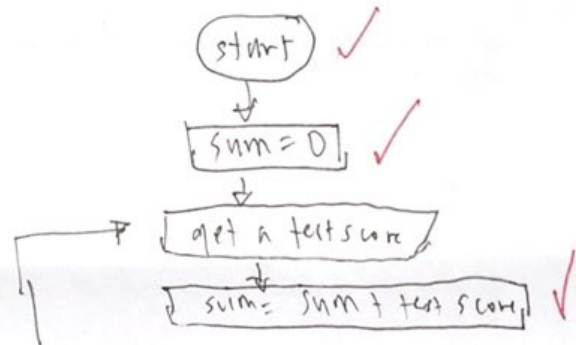 start
sum = 0
get a test score
sum = sum + test score